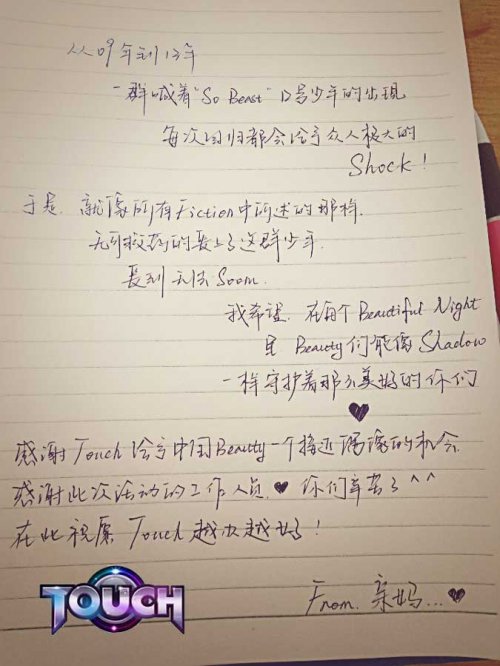 从09年到13年
一群喊着“So Beast”口号少年的出现
每次回归都会给予众人极大的
Shock!
于是. 就像所有Fiction中所述的那样.
无可救药的爱上了这群少年.
爱到无法Soom.
我希望. 在每个Beautiful Night
里 Beauty们能像Shadow
一样守护着那么美好的你们
♥
感谢Touch给予中国Beauty一个接近偶像的机会.
感谢此次活动的工作人员. ♥ 你们辛苦了^^
在此祝愿 Touch 越办越好!
TOUCH
From. 亲妈... ♥